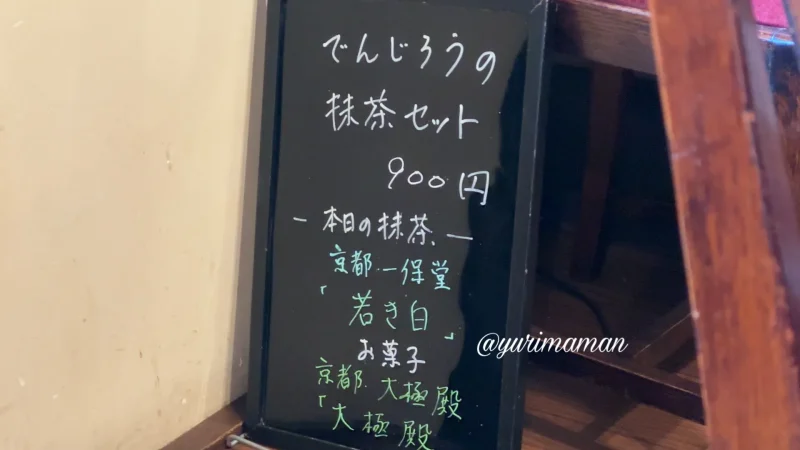 でんじろうの
抹茶セット
900円
- 本日の抹茶 -
京都 一保堂
「若き白」
お菓子
京都 大極殿
「大極殿
@yurimaman